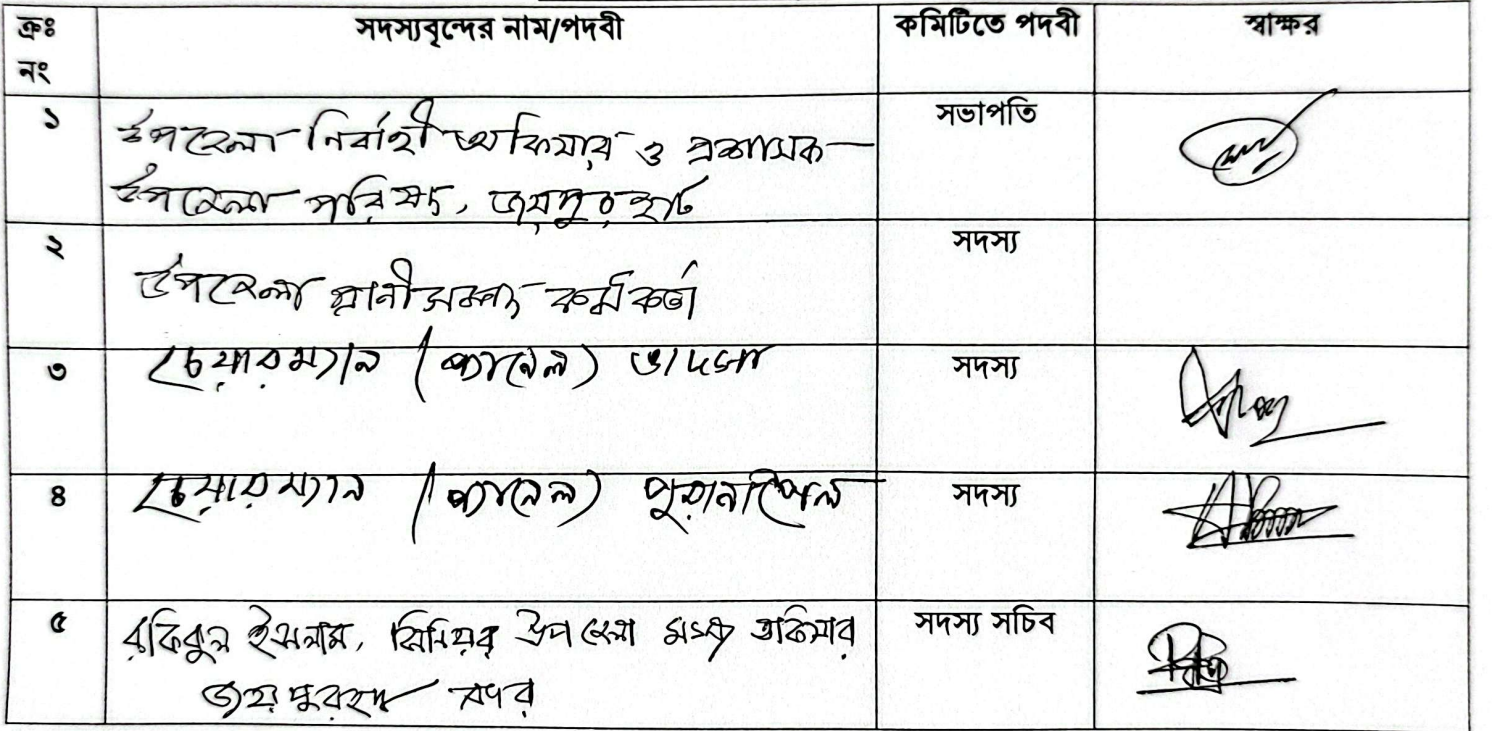 ক্রঃ নং সদস্যবৃন্দের নাম/পদবী কমিটিতে পদবী স্বাক্ষর
১ উপজেলা নির্বাহী অফিসার ও প্রশাসক সভাপতি
উপজেলা পরিষদ, জয়পুরহাট
২ উপজেলা প্রানীসম্পদ কর্মকর্তা সদস্য
৩ চেয়ারম্যান (প্যানেল) ভাদসা সদস্য
৪ চেয়ারম্যান (প্যানেল) পুরানাপৈল সদস্য
৫ রফিকুল ইসলাম, সিনিয়র উপজেলা মৎস্য অফিসার সদস্য সচিব
জয়পুরহাট সদর